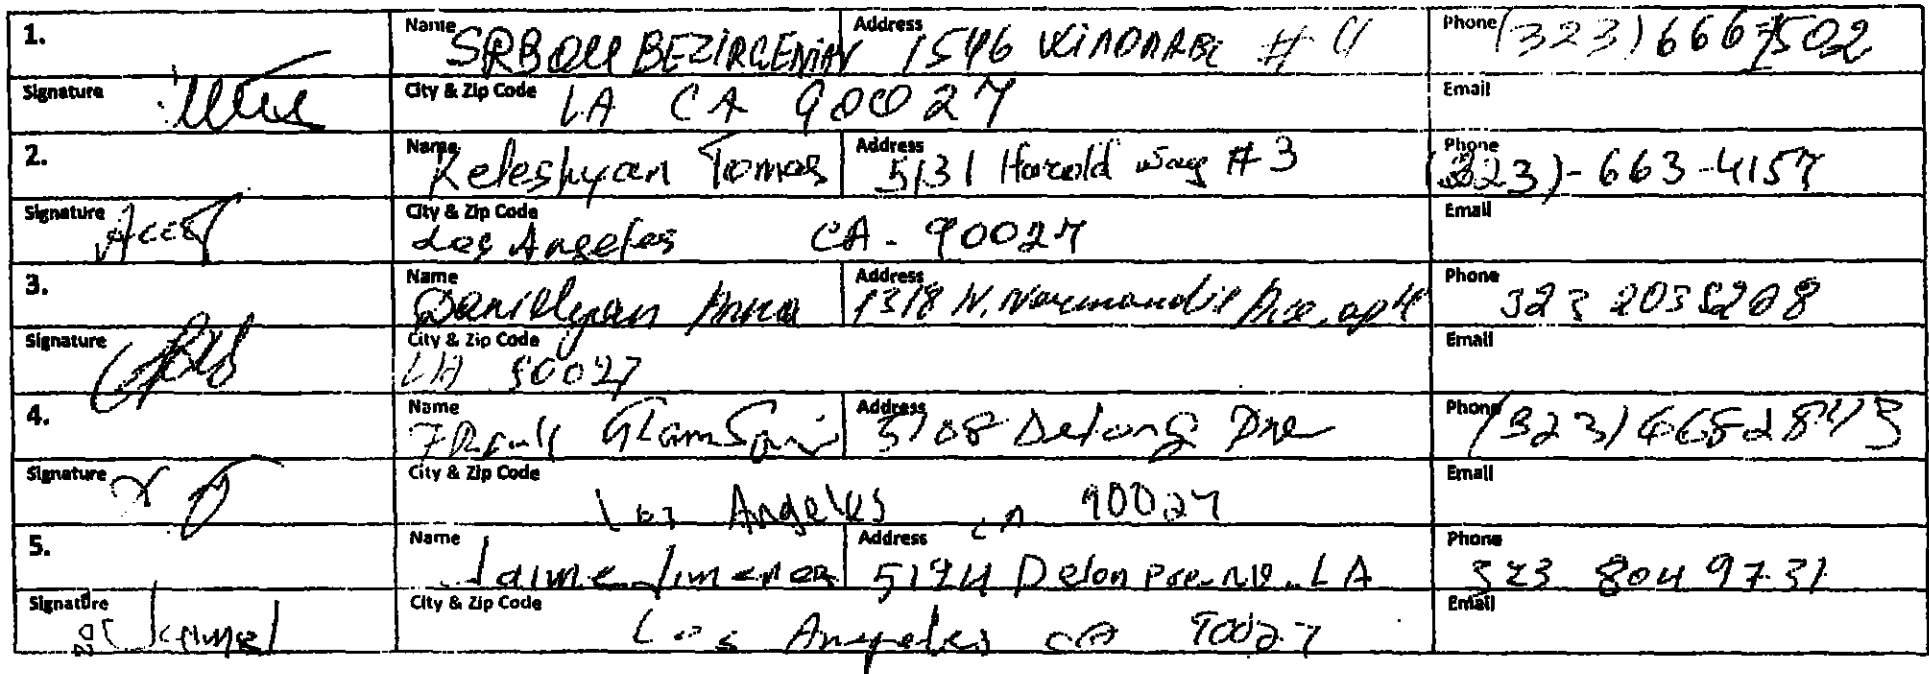 1. Name SRBOUI BEZIRGENIAN Address 1546 # 4 Phone (323) 666-7502
Signature City & Zip Code LA CA 90027 Email
2. Name Keleshyan Tomas Address 5131 Harold way # 3 Phone (323)-663-4157
Signature City & Zip Code Los Angeles CA. 90027 Email
3. Name Danielyan Anna Address 1318 N. Normandie Ave. apt 4 Phone 323 2035208
Signature City & Zip Code LA 90027 Email
4. Name Address 5108 Delong Pre Phone (323) 6652843
Signature X City & Zip Code Los Angeles CA 90027 Email
5. Name Jaime Jimenez Address 5174 Delonpre Av. LA Phone 323 804 9731
Signature City & Zip Code Los Angeles CA 90027 Email